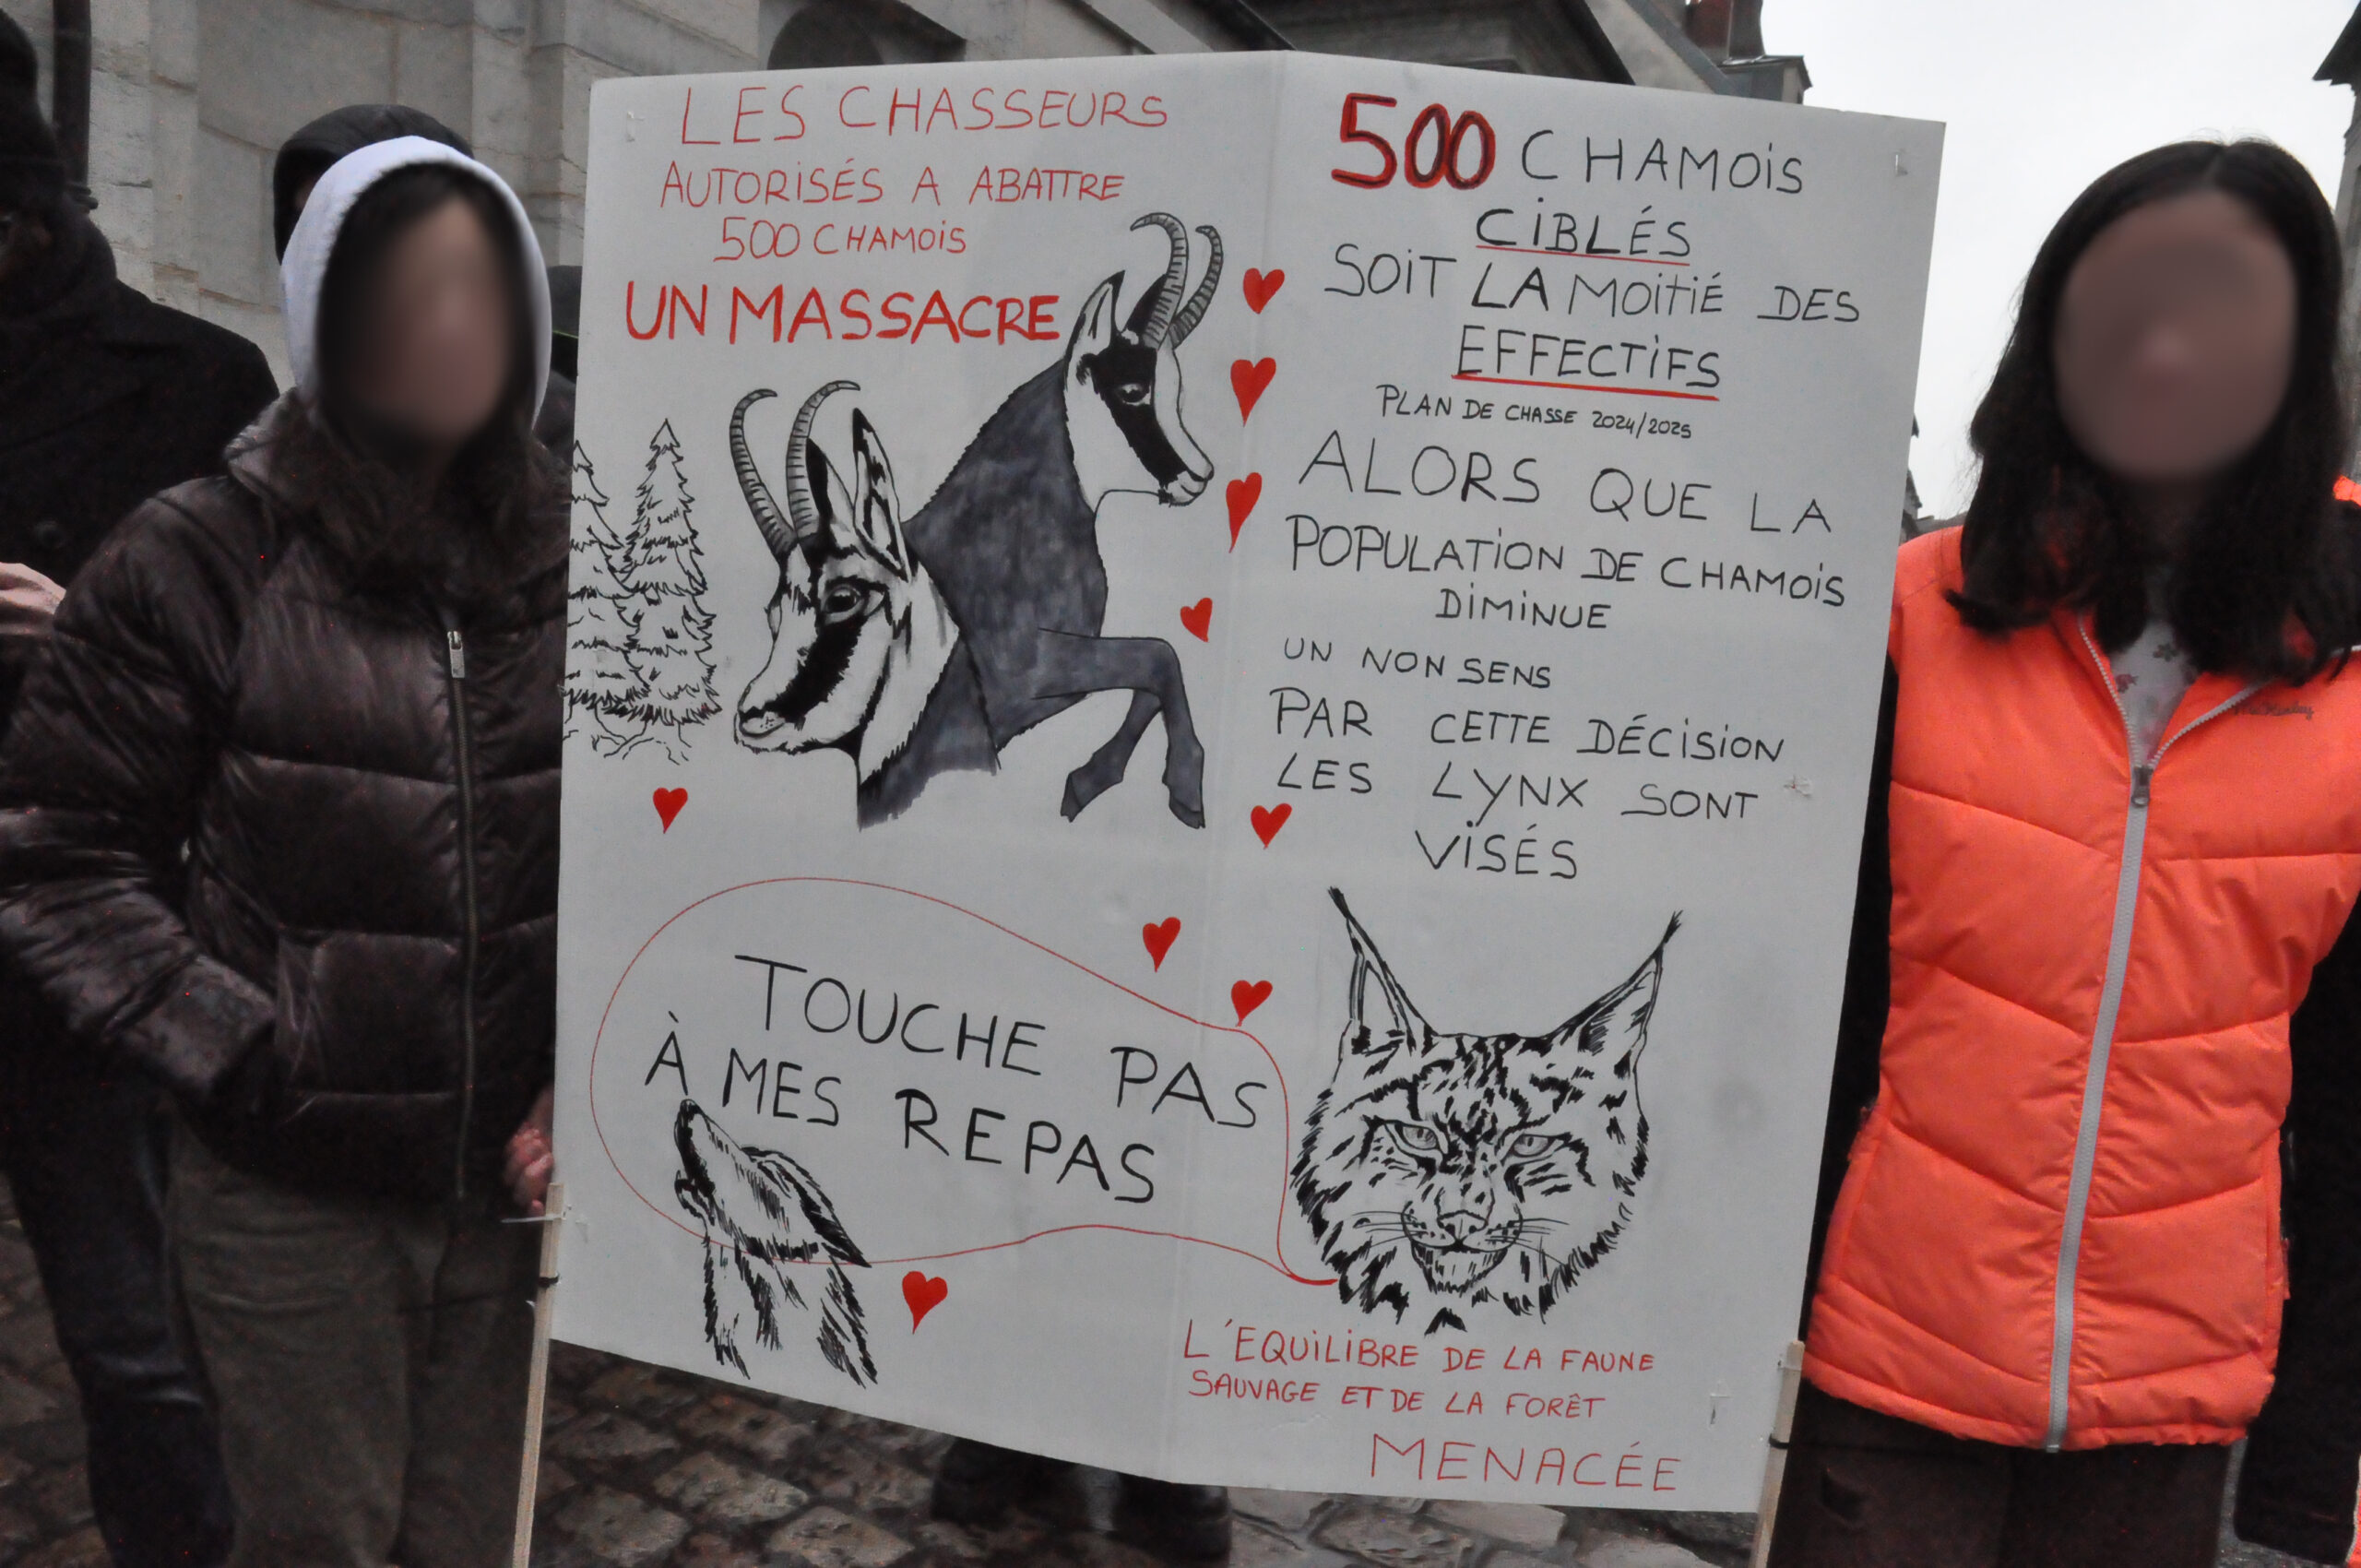 LES CHASSEURS
AUTORISÉS A ABATTRE
500 CHAMOIS
UN MASSACRE
500 CHAMOIS
CIBLÉS
SOIT LA MOITIÉ DES
EFFECTIFS
PLAN DE CHASSE 2024/2025
ALORS QUE LA
POPULATION DE CHAMOIS
DIMINUE
UN NON SENS
PAR CETTE DÉCISION
LES LYNX SONT
VISÉS
TOUCHE PAS
À MES REPAS
L'EQUILIBRE DE LA FAUNE
SAUVAGE ET DE LA FORÊT
MENACÉE